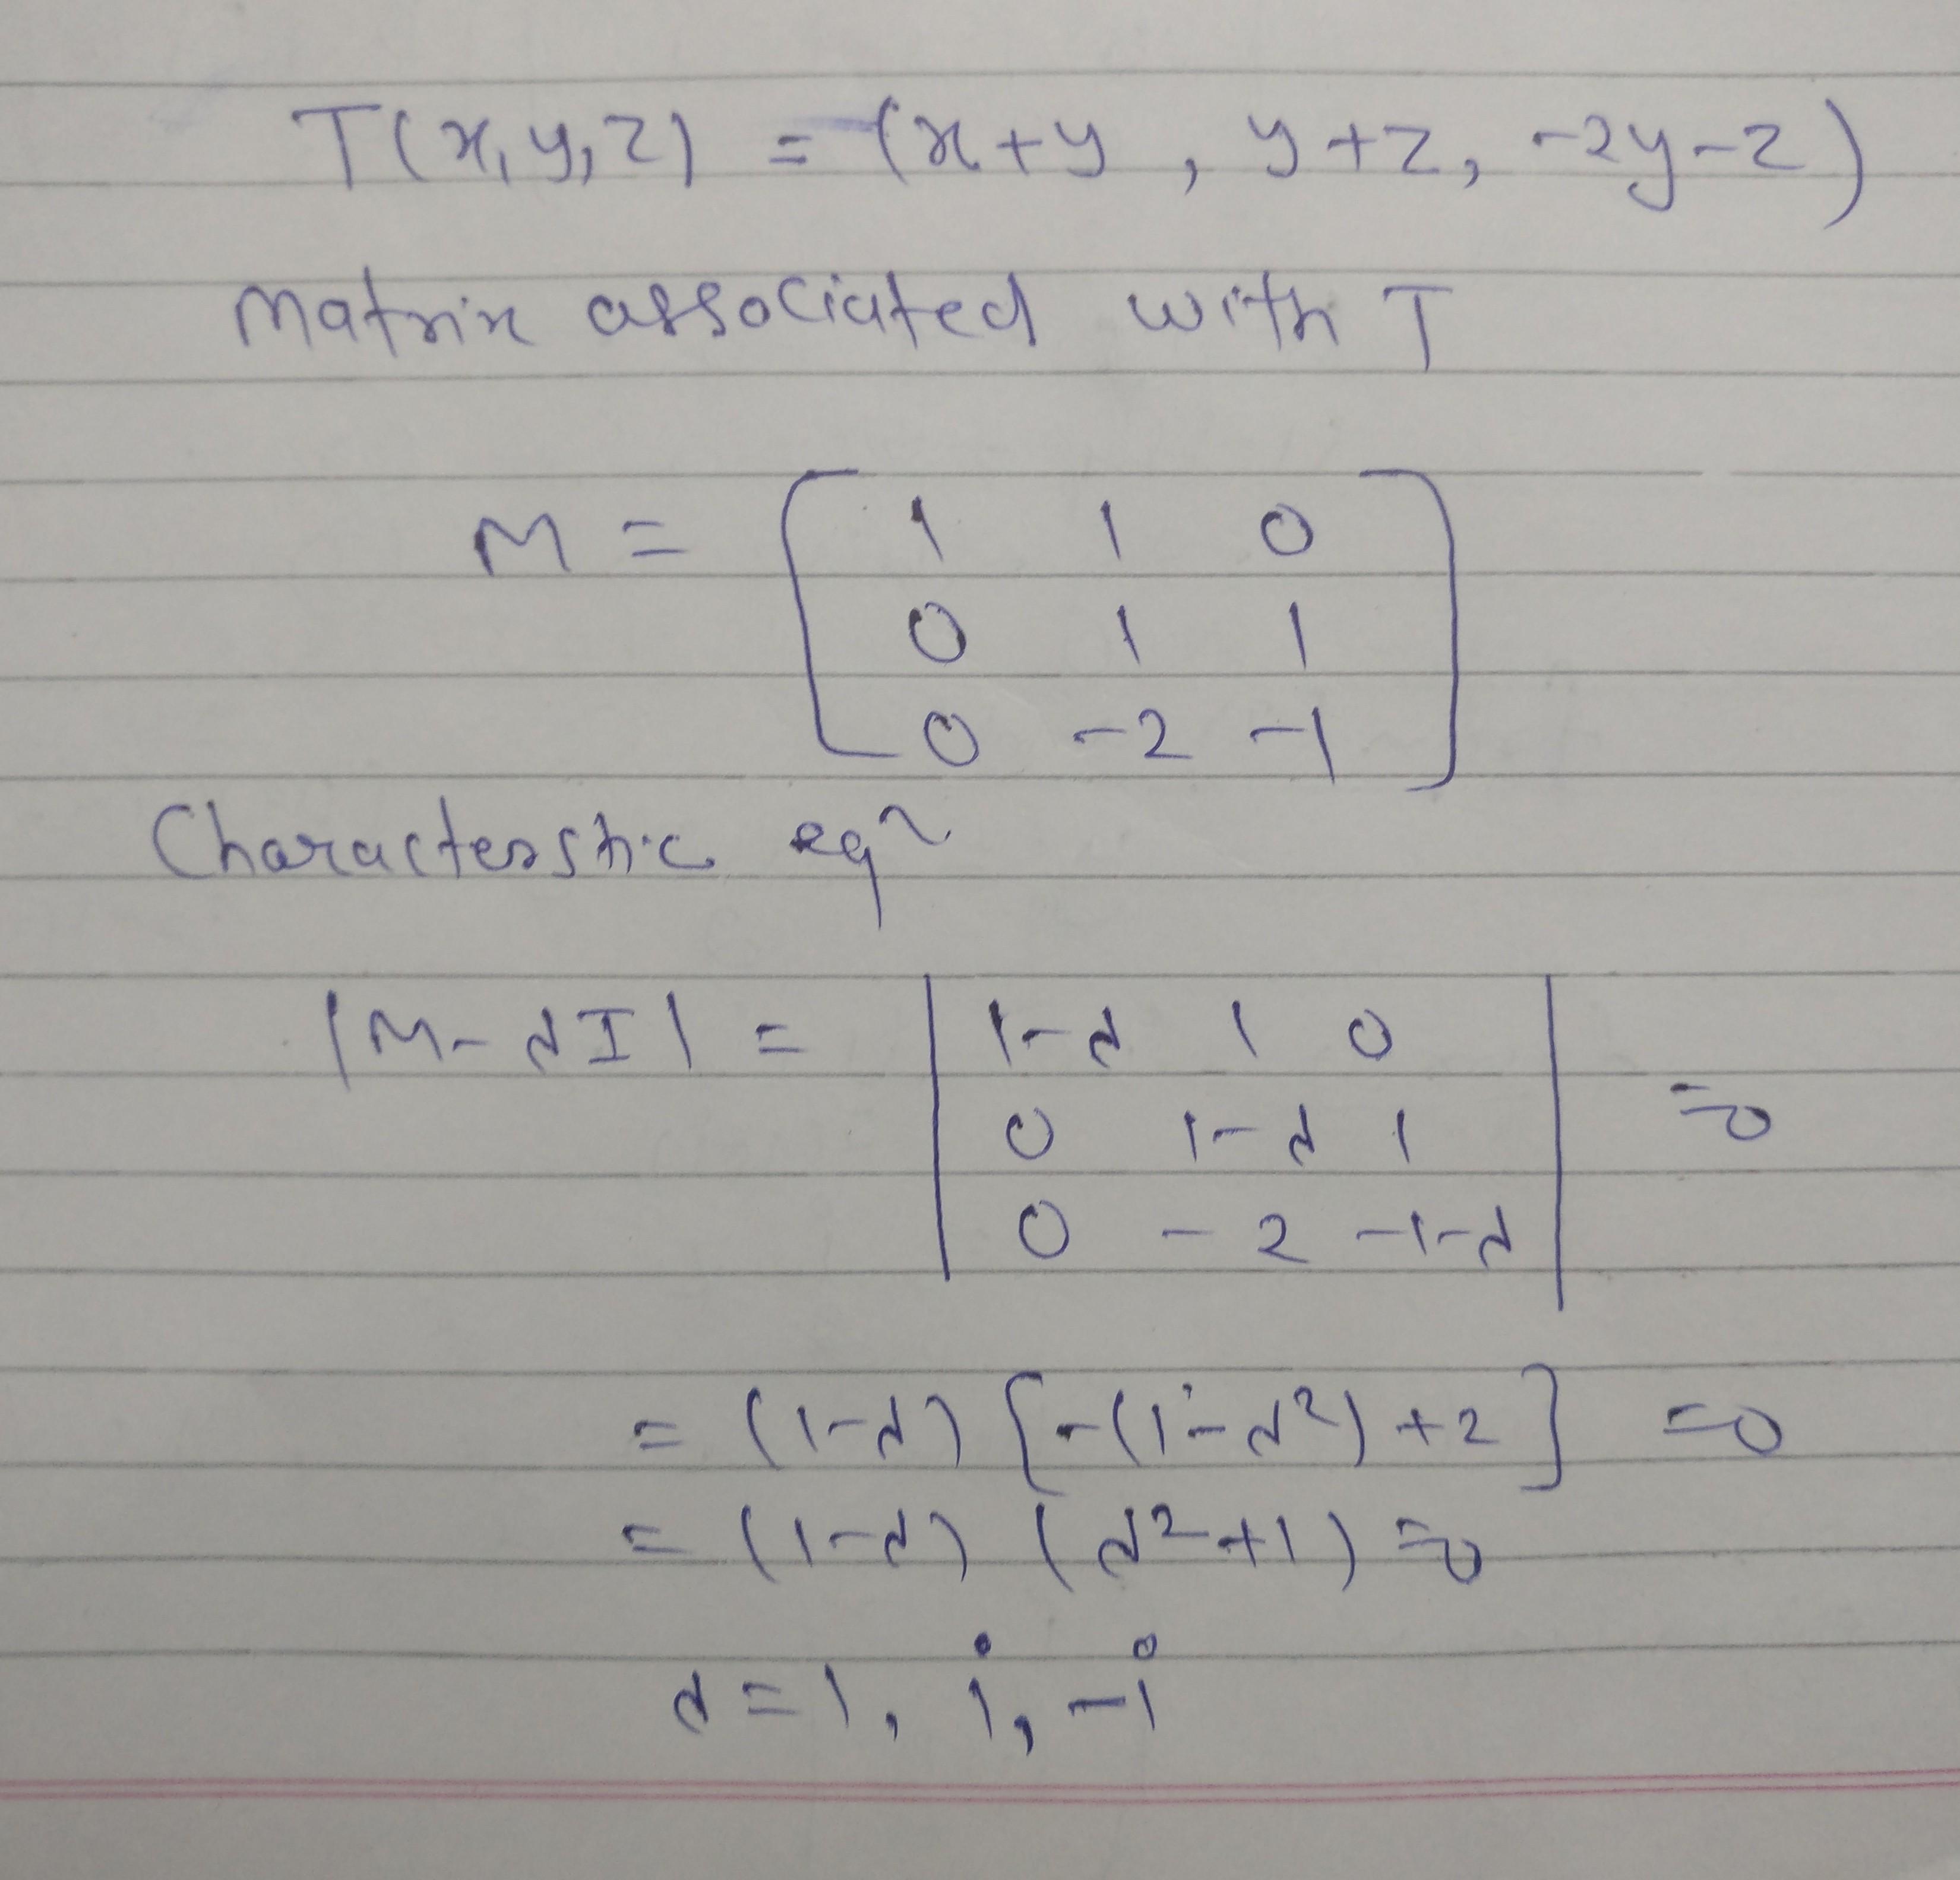 T(x, y, z) = (x+y, y+z, -2y-z)
Matrix associated with T
M = [ 1 1 0
0 1 1
0 -2 -1 ]
Characterstic eqn
|M-λI| = | 1-λ 1 0
0 1-λ 1 | =0
0 -2 -1-λ
= (1-λ) [-(1-λ²)+2] =0
= (1-λ) (λ²+1) =0
λ=1, i, -i